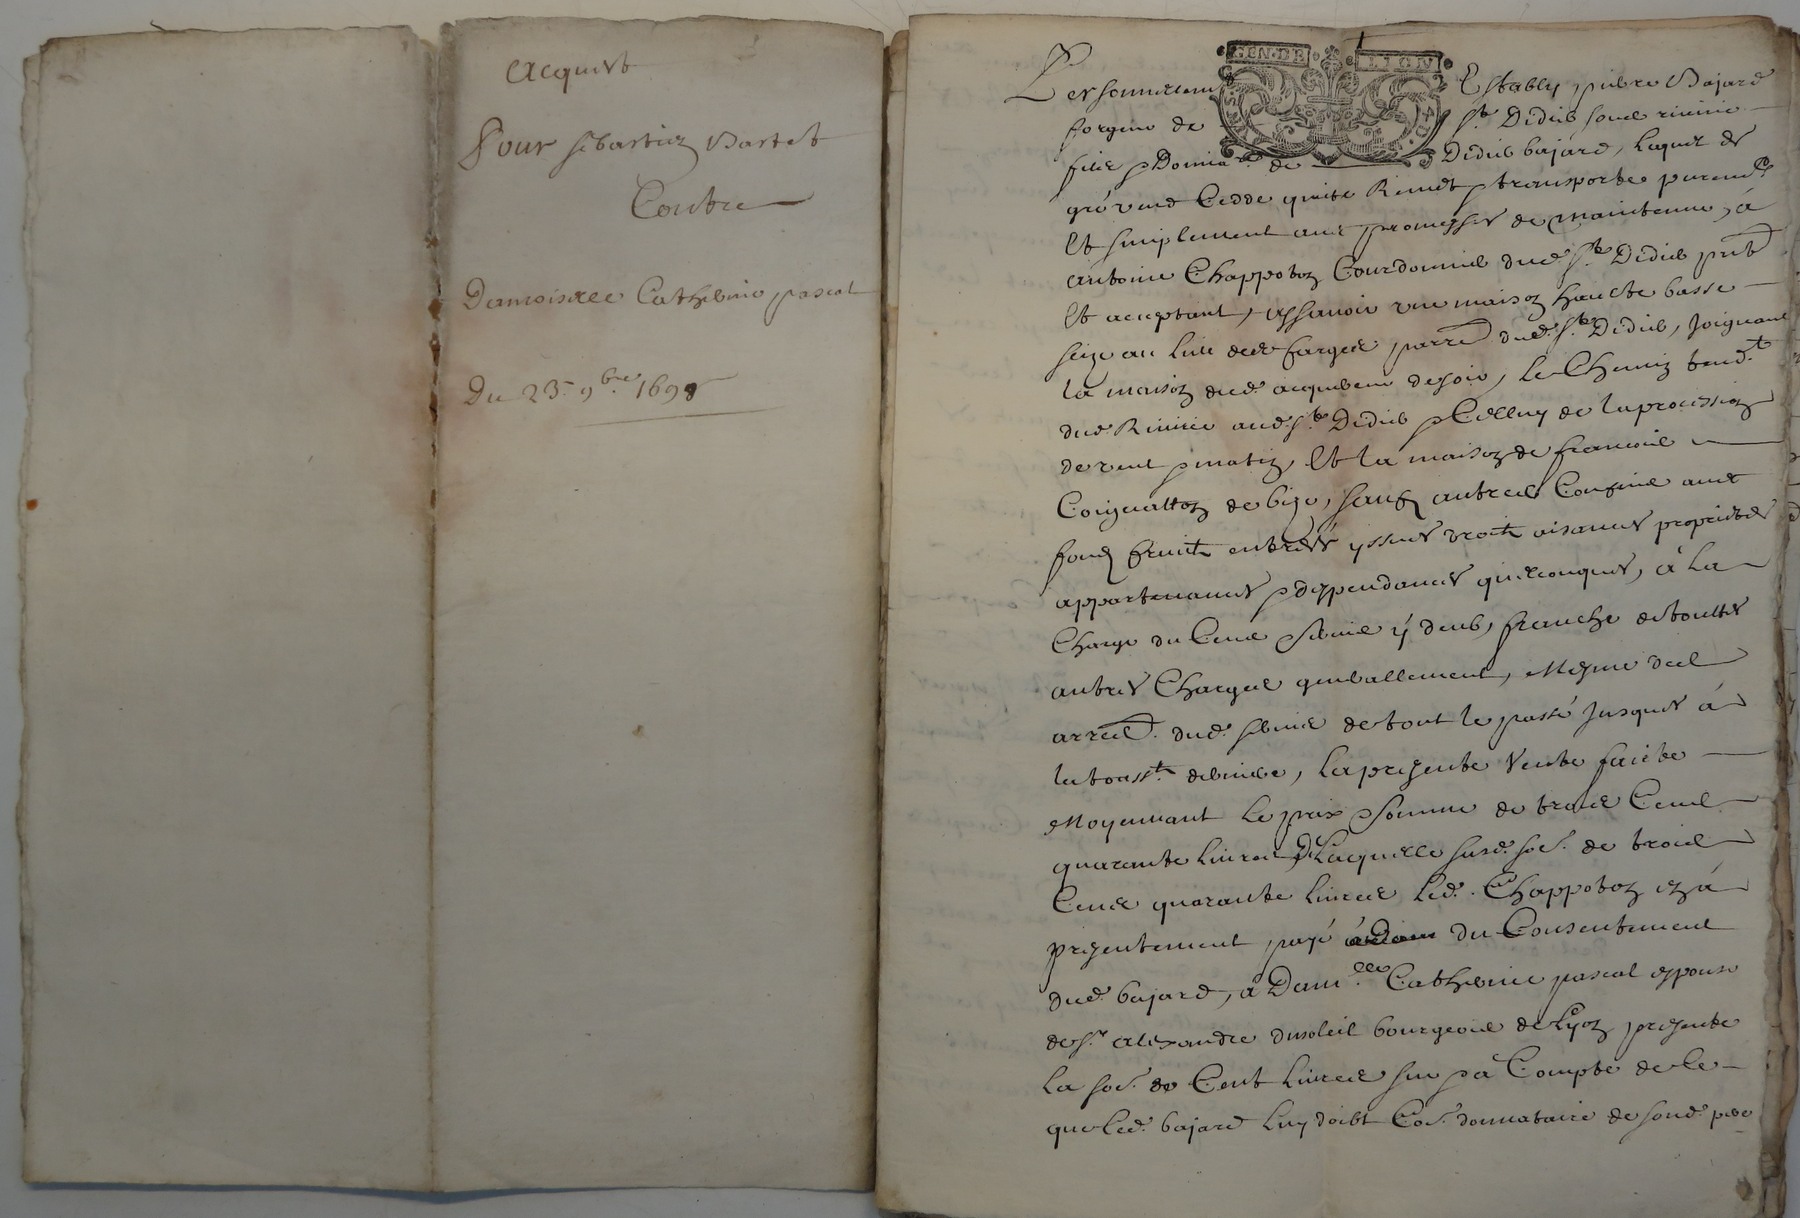 Acquist
Pour sebastien Bartet
Contre
Damoiselle Catherine pascal
Du 23e 9bre 1698
GEN.DE LION
Personnellemt Estably pierre Bajard
forgeur de St Didier soubz riverie
filz & Donnare de Didier bajard, Lequel de
gré vend Cedde quitte Remet & transporte puremt
Et simplement avec promesses de maintenue, à
Antoine Chappoton Courdonnier dud. St Didier prnt
Et acceptant, Assavoir une maison haulte basse
seize au lieu des farges parre dud. St Didier, Joignant
la maison dud. acquereur de soir, le Chemin tendt
dud. Riverie aud. St Didier & Celluy de la procession
de vent & matin, Et la maison de francois
Coignatton de bize, sauf autres Confins avec
fond fruitz entrées yssues droitz aisances proprietés
appartenances & deppendances quelconques, à la
Charge du Cens & servis y deub, franche de touttes
autres Charges generallement, Mesme des
arreés. dud. servis de tout le passé Jusques à
la touss.ts derniere, la presente Vente faicte
Moyennant le prix & somme de trois Cens
quarante livres, Laquelle susd. so.e de trois
Cens quarante livres led. Chappoton en à
presentement payé du Consentement
dud. bajard, à Dam.elle Catherine pascal espouse
de sr. Alexandre dusoleil bourgeois de Lyon presente
la so.e de Cent livres sur & à Compte de ce
que led. bajard luy doibt Co.e donnataire de sond. pere